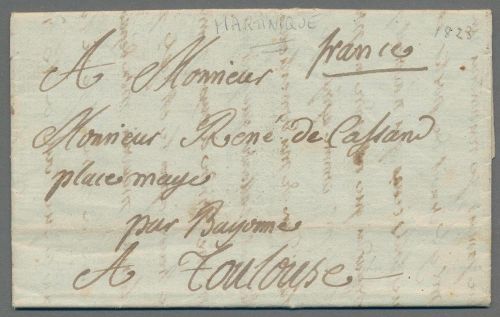 MARTINIQUE
1823
france
A Monsieur
Monsieur René de Cassand
place mage
par Bayonne
A Toulouse